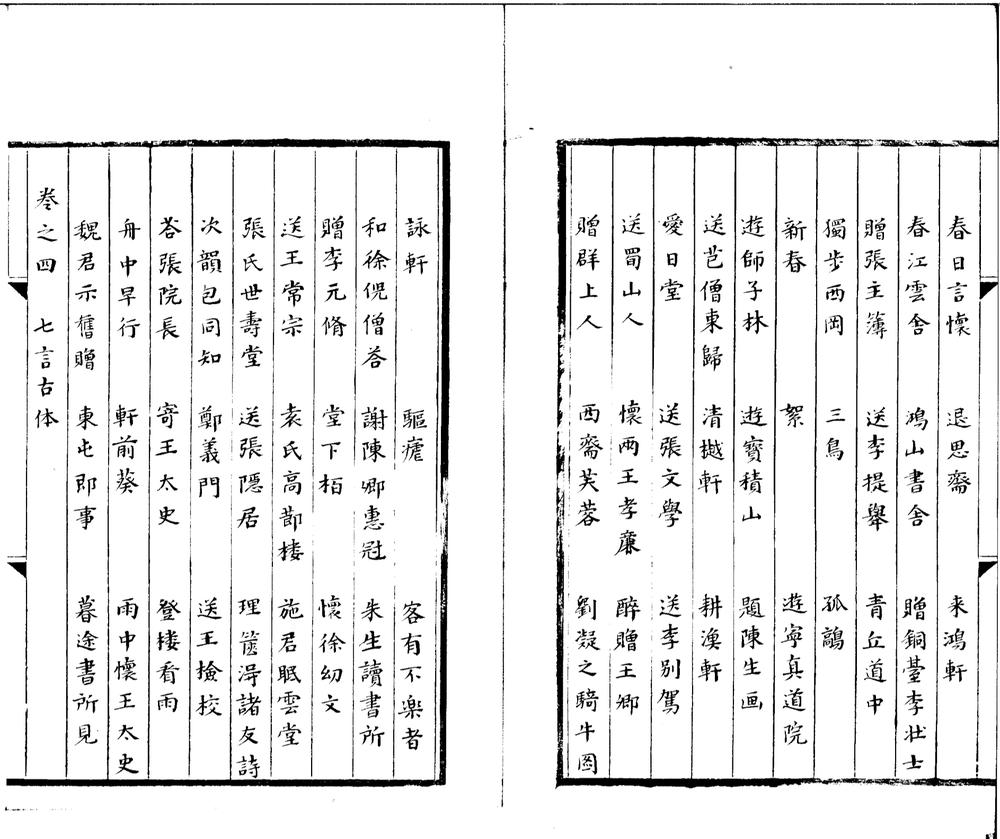 春日言懷　退思齋　来鴻軒
春江雲舎　鴻山書舎　贈銅臺李壮士
贈張主簿　送李提舉　青丘道中
獨步西岡　三鳥　孤鶴
新春　絮　遊寧真道院
遊師子林　遊寶積山　題陳生画
送芑僧東歸　清樾軒　耕漁軒
愛日堂　送張文學　送李别駕
送蜀山人　懷兩王孝廉　醉贈王卿
贈群上人　西齋芙蓉　劉凝之騎牛图
詠軒　驅瘧　客有不楽者
和徐倪僧荅　謝陳卿惠冠　朱生讀書所
贈李元脩　堂下栢　懷徐幼文
送王常宗　袁氏高莭楼　施君眠雲堂
張氏世壽堂　送張隱居　理篋淂諸友詩
次韻包同知　鄭義門　送王撿校
荅張院長　寄王太史　登楼看雨
舟中早行　軒前葵　雨中懷王太史
魏君示舊贈　東屯即事　暮途書所見
卷之四　七言古体